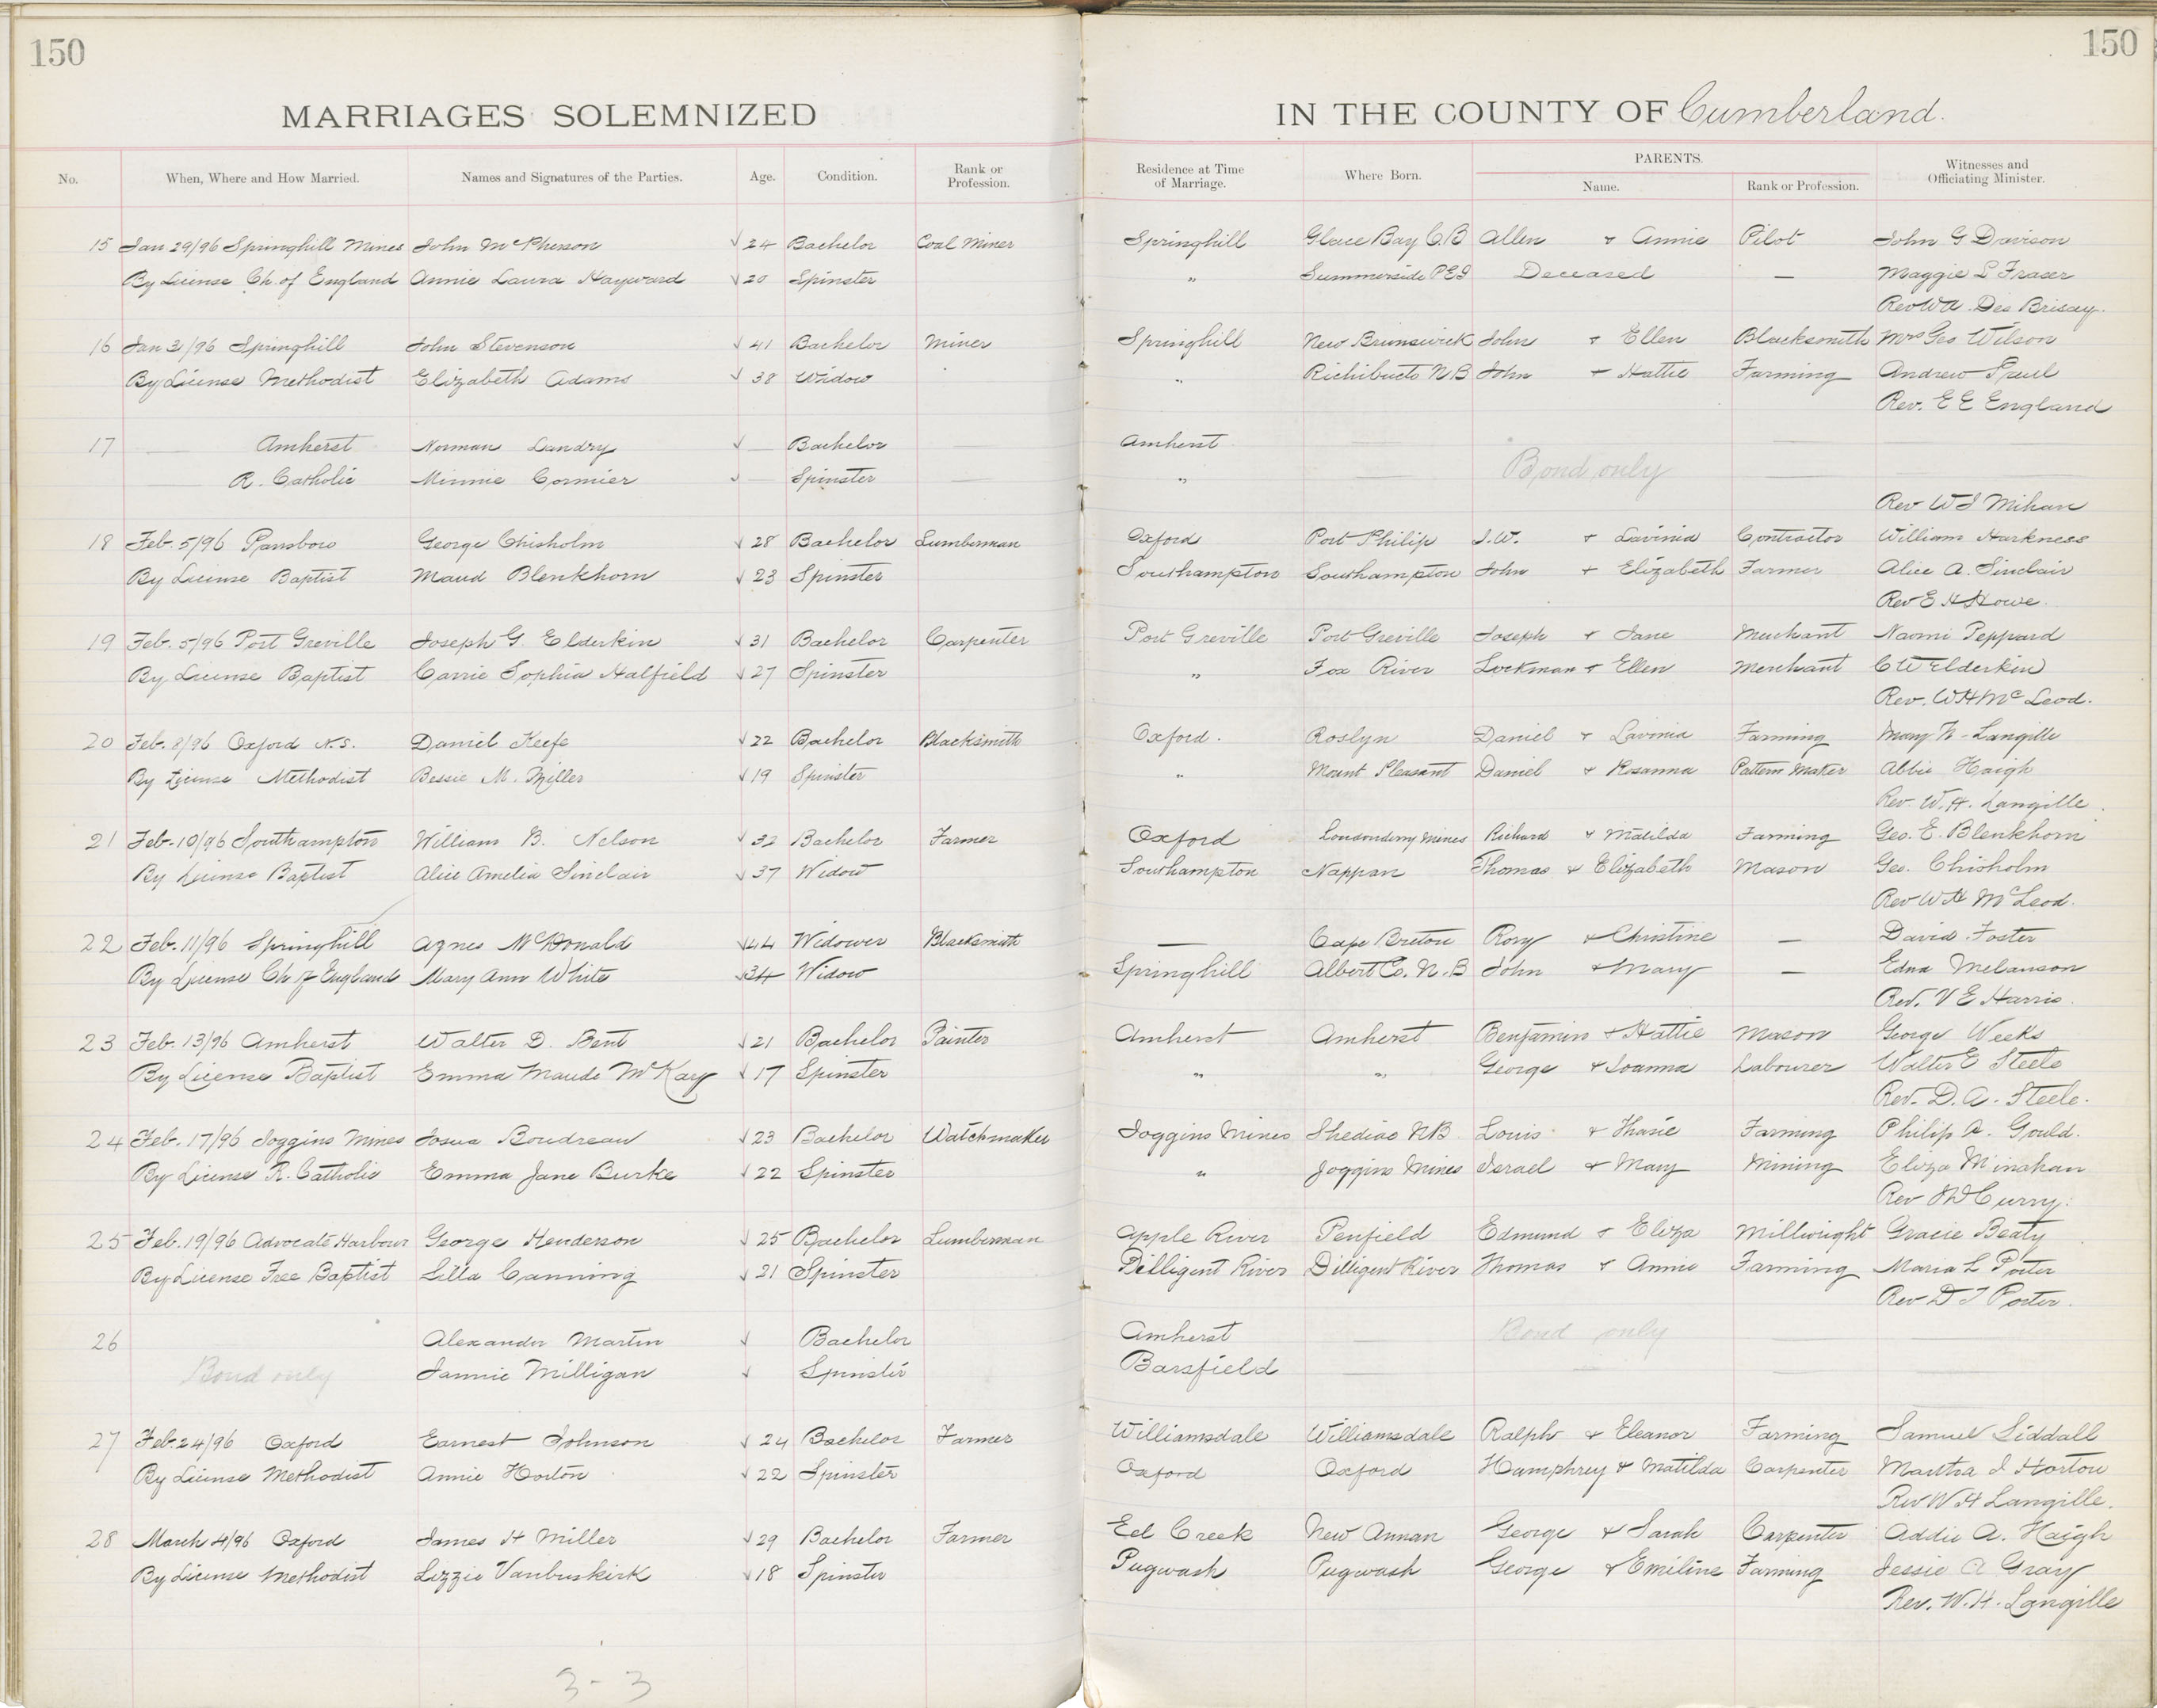 150
150
MARRIAGES SOLEMNIZED IN THE COUNTY OF Cumberland.
No. When, Where and How Married. Names and Signatures of the Parties. Age. Condition. Rank or Profession. Residence at Time of Marriage. Where Born. PARENTS. Name. Rank or Profession. Witnesses and Officiating Minister.
15 Jan 29/96 Springhill Mines John McPherson √ 24 Bachelor Coal Miner Springhill Glace Bay C.B Allen + Annie Pilot John G Davison
By License Ch. of England Annie Laura Hayward √ 20 Spinster " Summerside PEI Deceased — Maggie L Fraser
Rev W A. Des Brisay.
16 Jan 31/96 Springhill John Stevenson √ 41 Bachelor Miner Springhill New Brunswick John + Ellen Blacksmith Mrs Geo Wilson
By License Methodist Elizabeth Adams √ 38 Widow " Richibucto N.B John + Hattie Farming Andrew Paul
Rev. E E England
17 — Amherst Norman Landry √ — Bachelor — Amherst — — —
— R. Catholic Minnie Cormier √ — Spinster — " — Bond only —
Rev W J Mihan
18 Feb. 5/96 Parrsboro George Chisholm √ 28 Bachelor Lumberman Oxford Port Philip J.W. + Lavinia Contractor William Harkness
By License Baptist Maud Blenkhorn √ 23 Spinster Southampton Southampton John + Elizabeth Farmer Alice A. Sinclair
Rev E H Howe.
19 Feb. 5/96 Port Greville Joseph G. Elderkin √ 31 Bachelor Carpenter Port Greville Port Greville Joseph + Jane Merchant Naomi Peppard
By License Baptist Carrie Sophia Halfield √ 27 Spinster " Fox River Lockman + Ellen Merchant C W Elderkin
Rev. W H McLeod.
20 Feb. 8/96 Oxford N.S. Daniel Keefe √ 22 Bachelor Blacksmith Oxford. Roslyn Daniel + Lavinia Farming Mary N. Langille
By License Methodist Bessie M. Miller √ 19 Spinster " Mount Pleasant Daniel + Rosanna Pattern Maker Abbie Haigh
Rev. W. H. Langille.
21 Feb. 10/96 Southampton William B. Nelson √ 32 Bachelor Farmer Oxford Londonderry Mines Richard + Matilda Farming Geo. E. Blenkhorn
By License Baptist Alice Amelia Sinclair √ 37 Widow Southampton Nappan Thomas + Elizabeth Mason Geo. Chisholm
Rev W H McLeod.
22 Feb. 11/96 Springhill Agnes McDonald √ 44 Widower Blacksmith — Cape Breton Rory + Christine — David Foster
By License Ch of England Mary Ann White √ 34 Widow Springhill Albert Co. N.B John + Mary — Edna Melanson
Rev. V E Harris.
23 Feb. 13/96 Amherst Walter D. Bent √ 21 Bachelor Painter Amherst Amherst Benjamin + Hattie Mason George Weeks
By License Baptist Emma Maude McKay √ 17 Spinster " " George + Joanna Labourer Walter E Steele
Rev. D. A. Steele.
24 Feb. 17/96 Joggins Mines Josua Boudreau √ 23 Bachelor Watchmaker Joggins Mines Shediac NB Louis + Thasie Farming Philip A. Gould.
By License R. Catholic Emma Jane Burke √ 22 Spinster " Joggins Mines Israel + Mary Mining Eliza Minahan
Rev Curry.
25 Feb. 19/96 Advocate Harbour George Henderson √ 25 Bachelor Lumberman Apple River Penfield Edmund + Eliza Millwright Gracie Beaty
By License Free Baptist Lilla Canning √ 21 Spinster Dilligent River Dilligent River Thomas + Annie Farming Maria L Porter
Rev D T Porter.
26 Alexander Martin √ Bachelor Amherst — Bond only —
Bond only Jannie Milligan √ Spinster Barsfield — — — —
27 Feb. 24/96 Oxford Earnest Johnson √ 24 Bachelor Farmer Williamsdale Williamsdale Ralph + Eleanor Farming Samuel Siddall
By License Methodist Annie Horton √ 22 Spinster Oxford Oxford Humphrey + Matilda Carpenter Martha J Horton
Rev W H Langille.
28 March 4/96 Oxford James H Miller √ 29 Bachelor Farmer Eel Creek New Annan George + Sarah Carpenter Addie A. Haigh
By License Methodist Lizzie Vanbuskirk √ 18 Spinster Pugwash Pugwash George + Emiline Farming Jessie A Gray
Rev. W. H. Langille
3-3